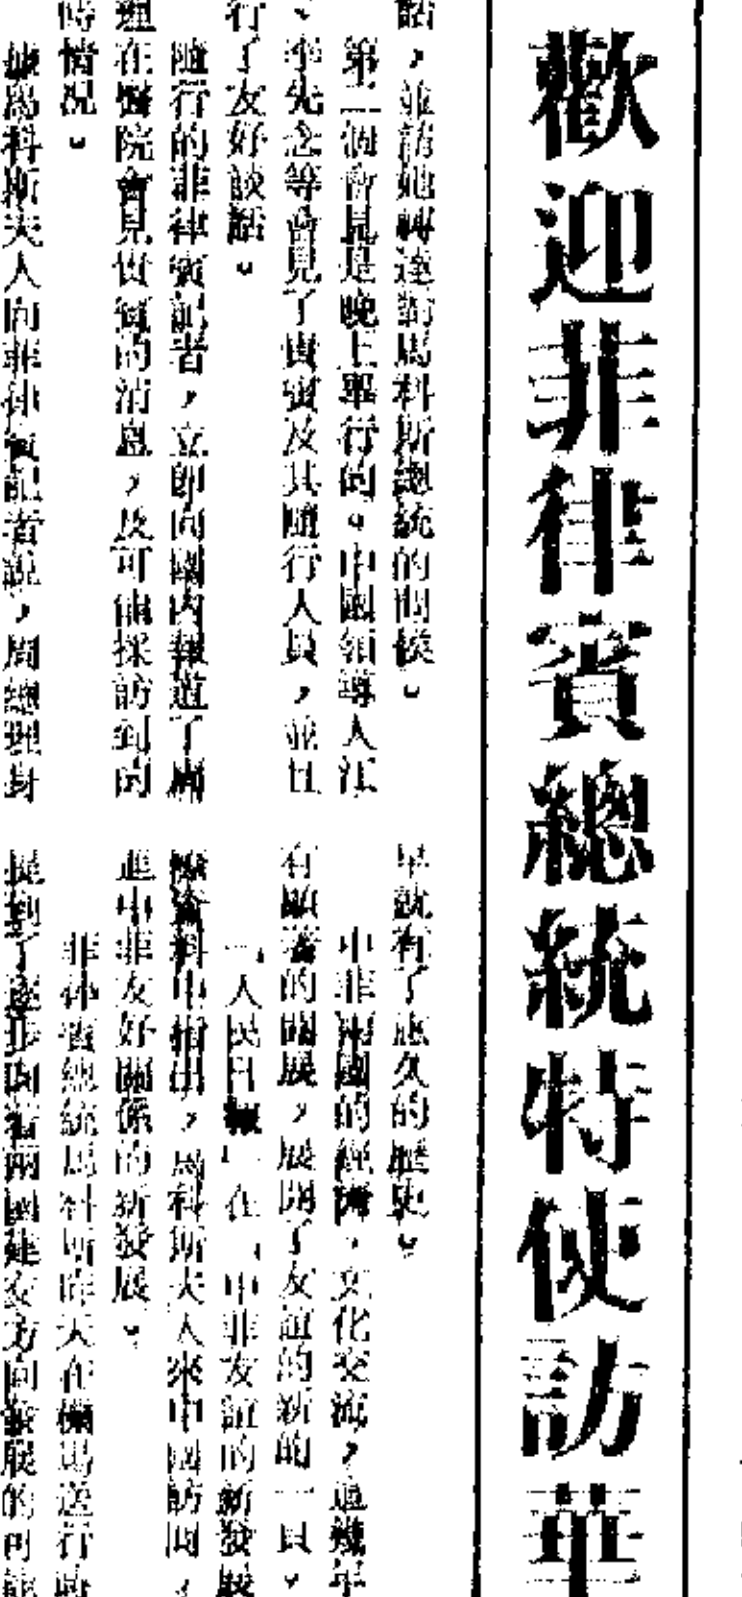 歡迎菲律賓總統特使訪華
話，並請她轉達對馬科斯總統的問候。
第二個會見是晚上舉行的。中國領導人江
、李先念等會見了貴賓及其隨行人員，並且
行了友好談話。
隨行的菲律賓記者，立即向國內報道了周
理在醫院會見貴賓的消息，及可能採訪到的
時情況。
據馬科斯夫人向菲律賓記者說，周總理身
早就有了悠久的歷史。
中菲兩國的經濟、文化交流，近幾年
有顯著的開展，展開了友誼的新的一頁。
「人民日報」在「中菲友誼的新發展
資料中指出，馬科斯夫人來中國訪問，
進中菲友好關係的新發展。
菲律賓總統馬科斯昨天在機場送行時
提到了逐步向着兩國建交方向發展的可能